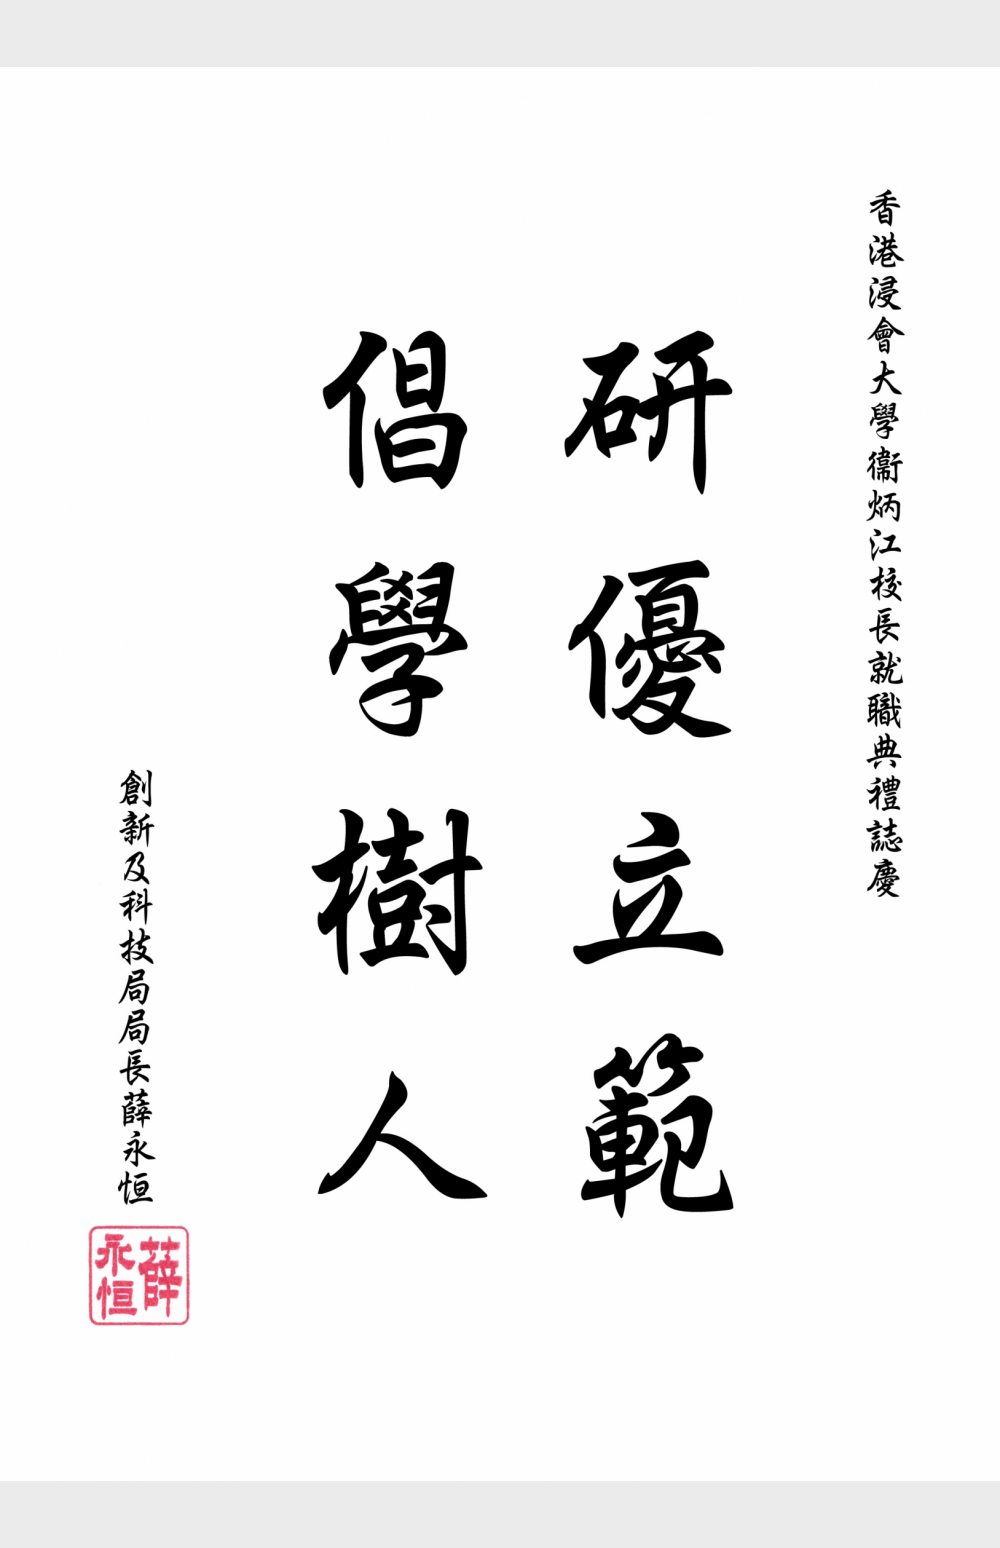 香港浸會大學衞炳江校長就職典禮誌慶
研優立範
倡學樹人
創新及科技局局長薛永恒
薛永恒